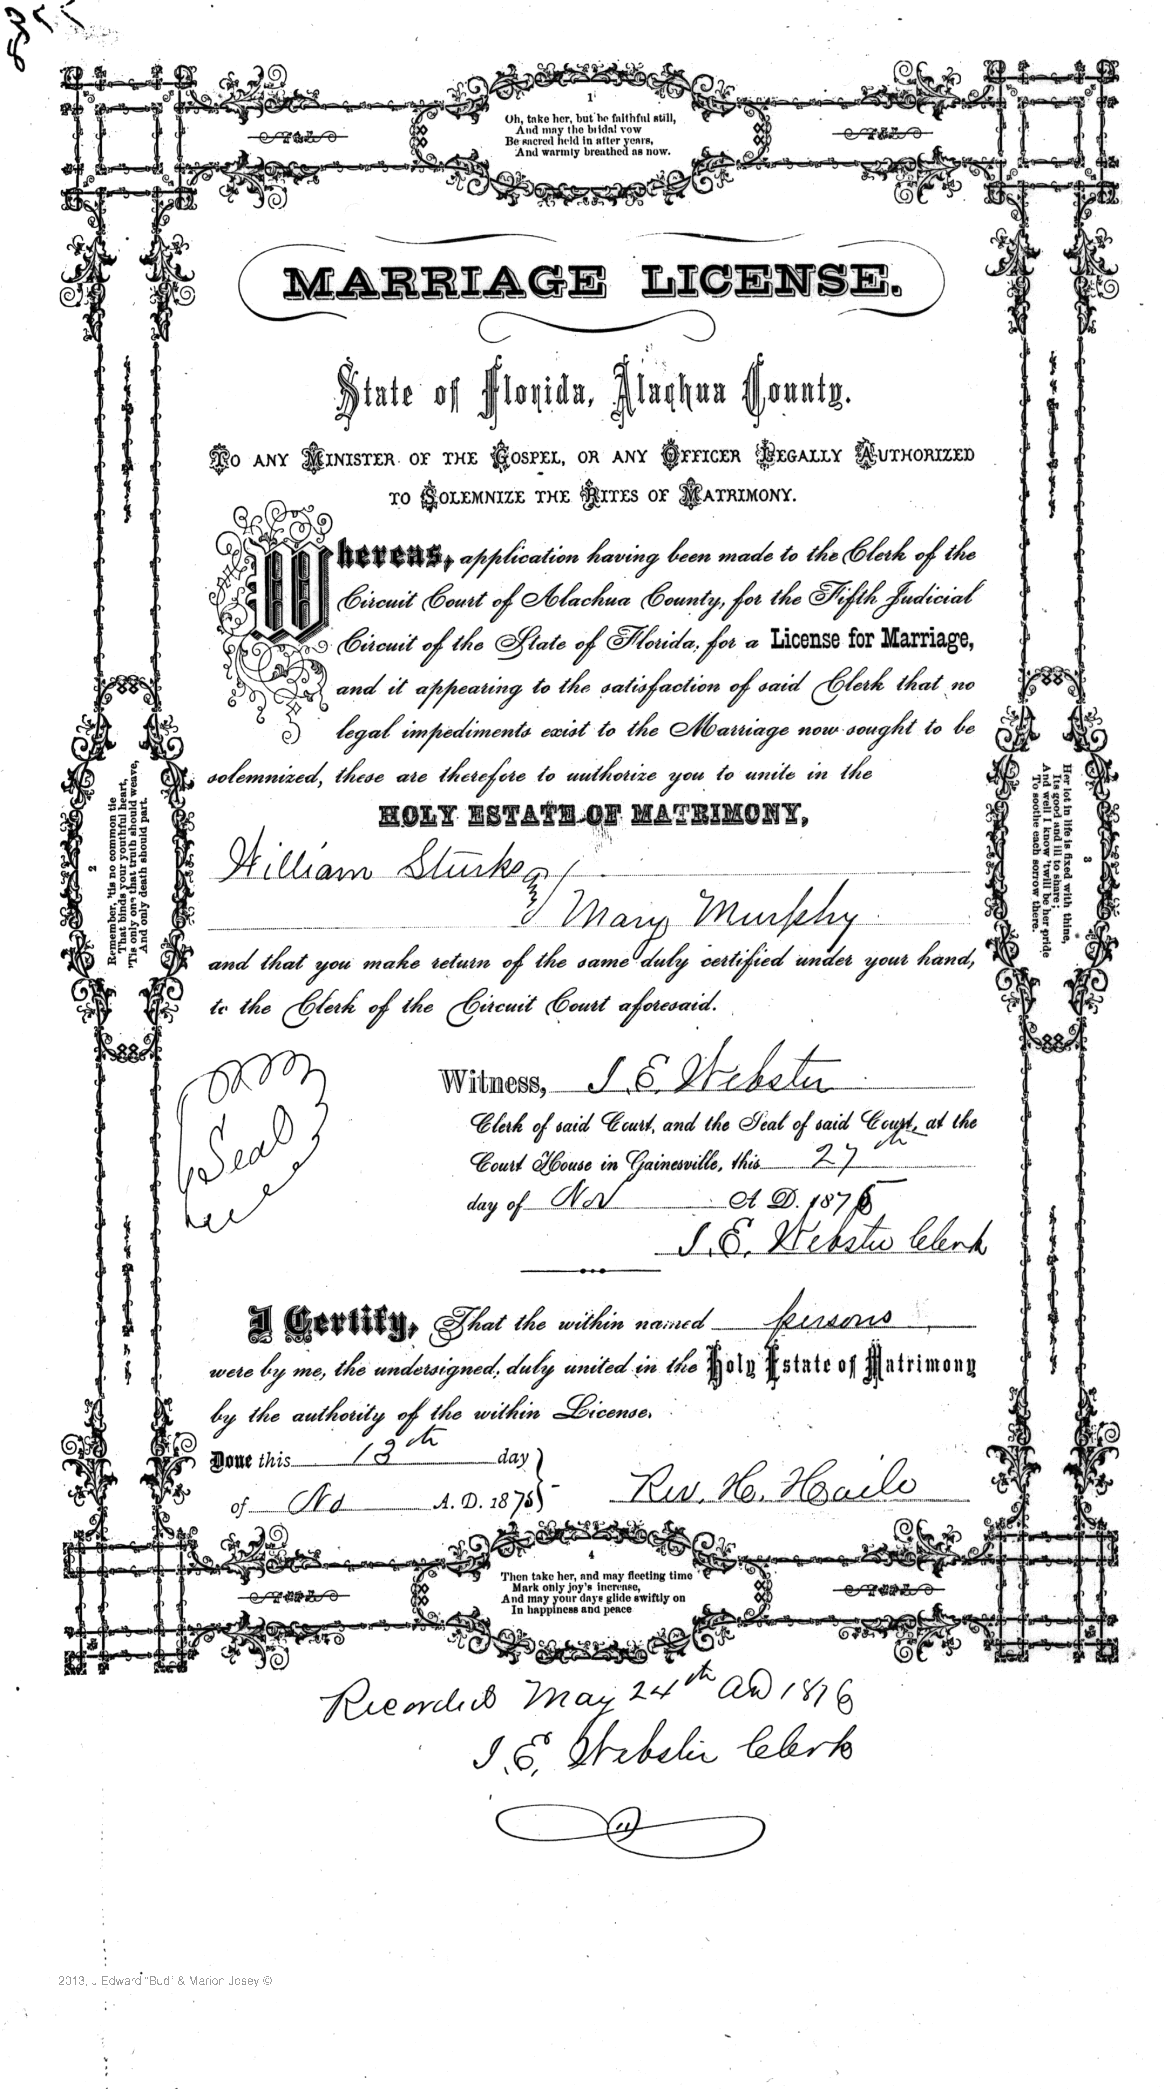 1
Oh, take her, but be faithful still,
And may the bridal vow
Be sacred held in after years,
And warmly breathed as now.
MARRIAGE LICENSE.
State of Florida, Alachua County.
TO ANY MINISTER OF THE GOSPEL, OR ANY OFFICER LEGALLY AUTHORIZED
TO SOLEMNIZE THE RITES OF MATRIMONY.
Whereas, application having been made to the Clerk of the
Circuit Court of Alachua County, for the Fifth Judicial
Circuit of the State of Florida, for a License for Marriage,
and it appearing to the satisfaction of said Clerk that no
legal impediments exist to the Marriage now sought to be
solemnized, these are therefore to authorize you to unite in the
HOLY ESTATE OF MATRIMONY,
William Sturks
Mary Murphy
and that you make return of the same duly certified under your hand,
to the Clerk of the Circuit Court aforesaid.
2
Remember, 'tis no common tie
That binds your youthful heart,
'Tis only one that truth should weave,
And only death should part.
3
Her lot in life is fixed with thine,
Its good and ill to share;
And well I know 'twill be her pride
To soothe each sorrow there.
Seal
Witness, I. E. Webster
Clerk of said Court, and the Seal of said Court, at the
Court House in Gainesville, this 27th
day of Nov A. D. 1875
I. E. Webster Clerk
I Certify, That the within named persons
were by me, the undersigned, duly united in the Holy Estate of Matrimony
by the authority of the within License.
Done this 13th day
of No A. D. 1875
Rev. H. Haile
4
Then take her, and may fleeting time
Mark only joy's increase,
And may your days glide swiftly on
In happiness and peace
Recorded May 24th AD 1876
I. E. Webster Clerk
2013, J Edward "Bud" & Marion Josey ©